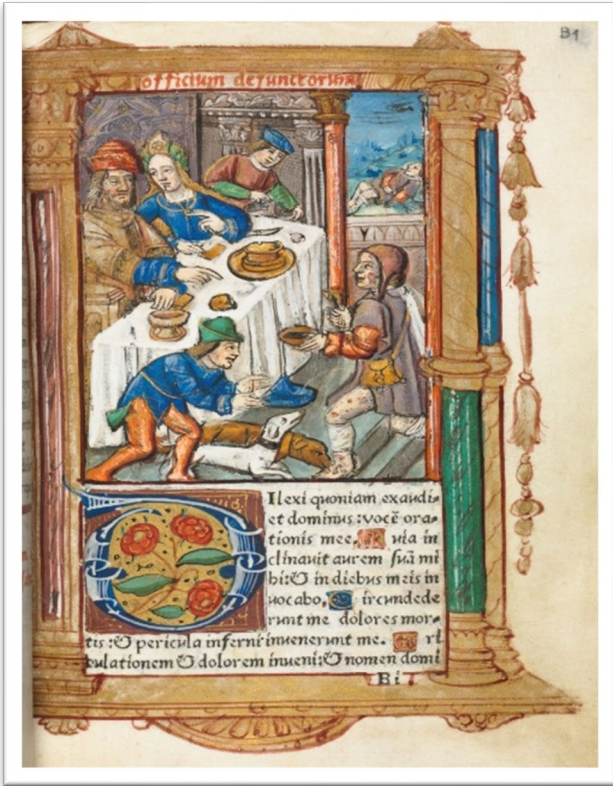 B1
officium defunctorum
Ilexi quoniam exaudi=
et dominus: vocē ora=
tionis mee. Quia in
clinauit aurem suā mi
hi: & in diebus meis in
uocabo. Circundede
runt me dolores mor=
tis: & pericula inferni inuenerunt me. Tri
bulationem & dolorem inueni: & nomen domi
B i